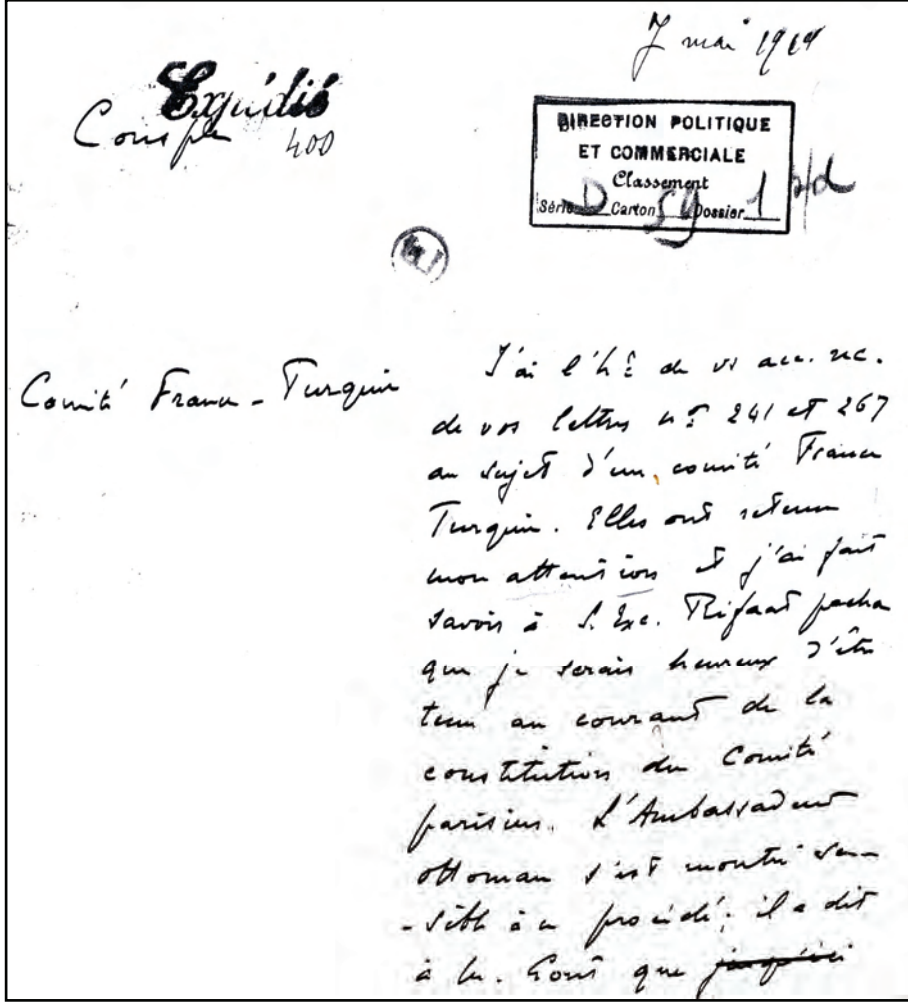 7 mai 1914
Expédié
Consple 400
DIRECTION POLITIQUE
ET COMMERCIALE
Classement
Série D Carton 59 Dossier 1
Comité France-Turquie
J'ai l'hr de vs acc. rec.
de vos lettres nos 241 et 267
au sujet d'un comité France
Turquie. Elles ont retenu
mon attention et j'ai fait
savoir à S. Exc. Rifaat pacha
que je serais heureux d'être
tenu au courant de la
constitution du Comité
parisien. L'Ambassadeur
ottoman s'est montré sen-
-sible à ce procédé; il a dit
à M. Gout que jusqu'ici